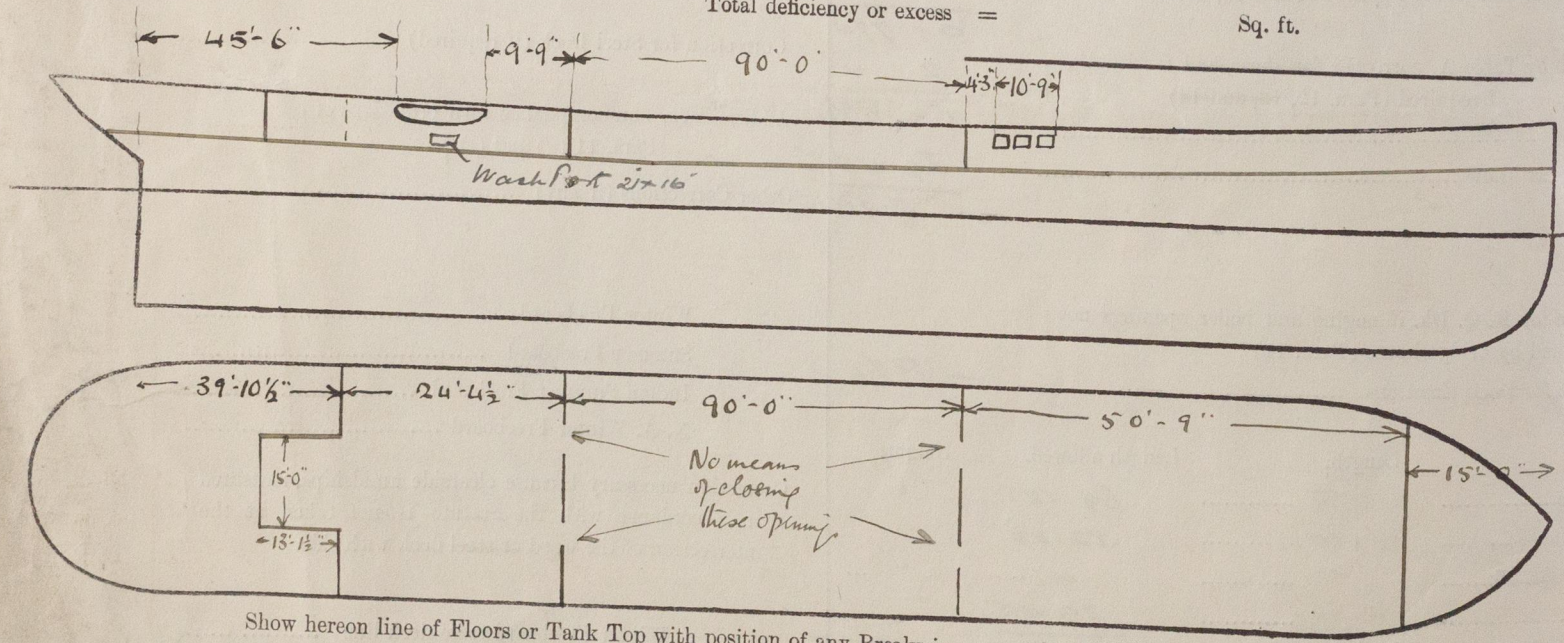 Total deficiency or excess =
Sq. ft.
45'-6"
9'-9"
90'-0"
4'3"
10'-9"
Wash Port 2'1" x 16"
39'-10½"
24'-4½"
90'-0"
50'-9"
15'-0"
15'-0"
13'-1½"
No means
of closing
these opening
Show hereon line of Floors or Tank Top with position of any